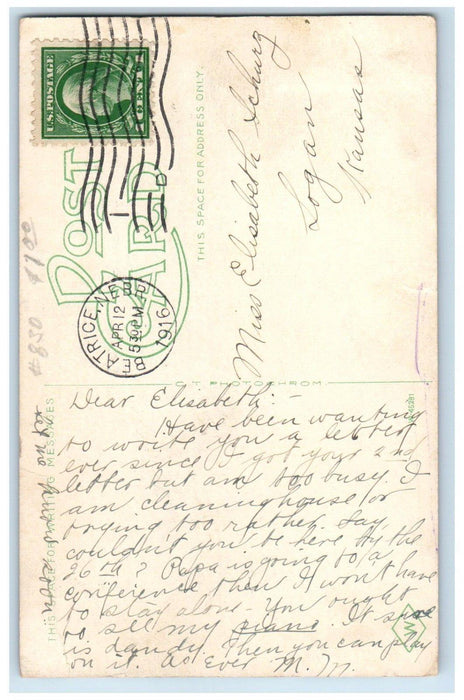 U.S. POSTAGE
1 CENT 1
POST CARD
THIS SPACE FOR ADDRESS ONLY.
BEATRICE, NEBR.
APR 12
530PM
1916
D
Miss Elisabeth Schurg
Logan
Kansas
#830 $7.00
THIS SPACE FOR WRITING MESSAGES
Dear Elisabeth:-
Have been wanting
to write you a letter
ever since I got your 2nd
letter but am too busy. I
am cleaning house or
trying too rather. Say
couldn't you be here by the
26th? Papa is going to a
conference then I won't have
to stay alone - You ought
to see my piano. It
is dandy. Then you can play
on it. As Ever M. M.